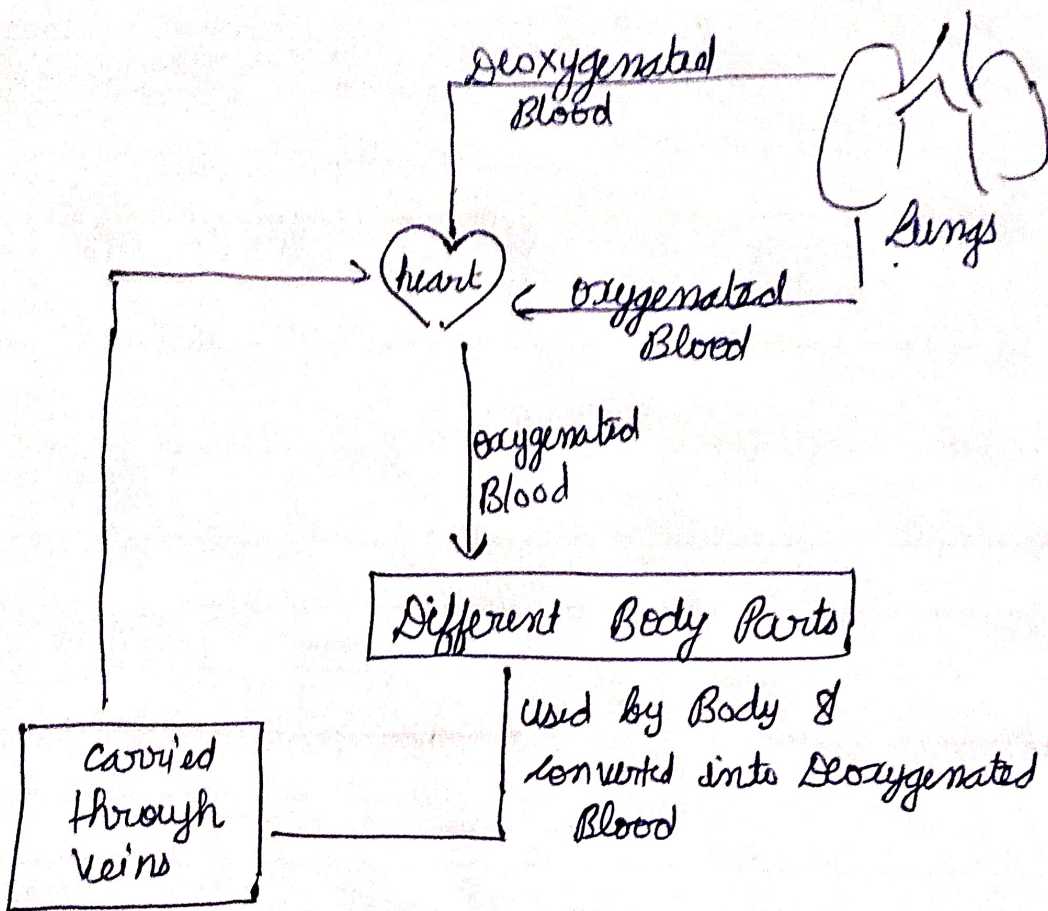 Deoxygenated
Blood
Lungs
heart
oxygenated
Blood
oxygenated
Blood
Different Body Parts
used by Body &
converted into Deoxygenated
Blood
carried
through
veins